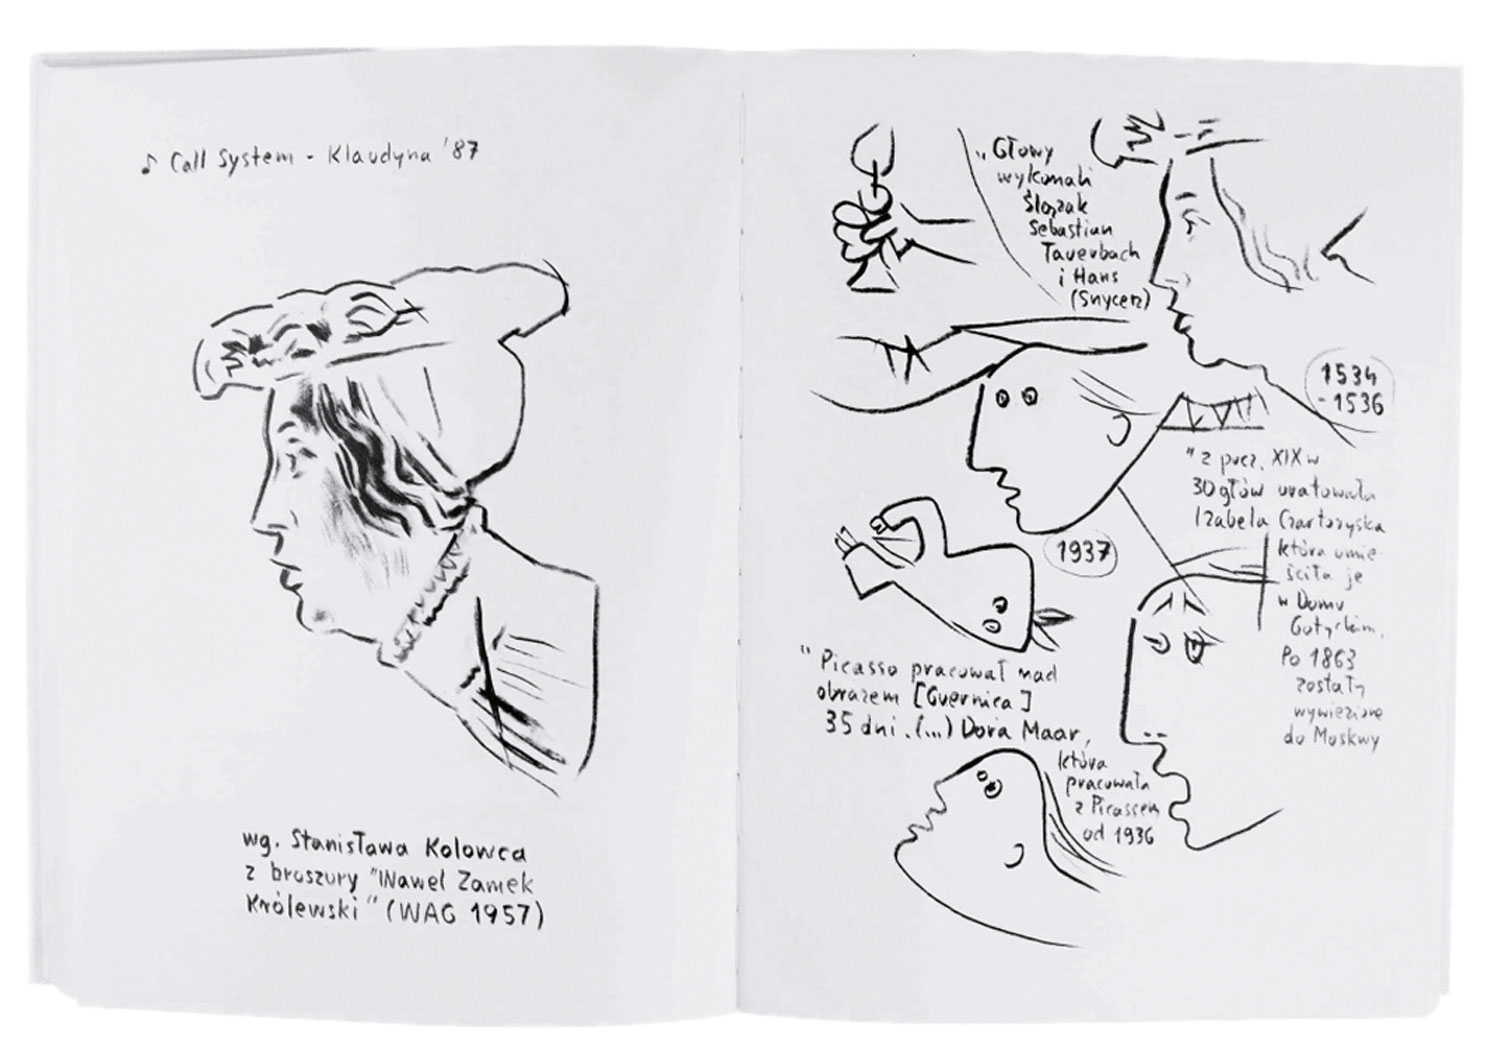 ♪ Call System - Klaudyna '87
wg. Stanisława Kolowca
z broszury "Wawel Zamek
Królewski" (WAG 1957)
"Głowy
wykonali
Ślązak
Sebastian
Tauerbach
i Hans
(Snycerz)
1534
-1536
"z pocz. XIX w
30 głów uratowała
Izabela Czartoryska
która umie-
ściła je
w Domu
Gotyckim.
Po 1863
zostały
wywiezione
do Moskwy
1937
"Picasso pracował nad
obrazem [Guernica]
35 dni. (...) Dora Maar,
która
pracowała
z Picassem
od 1936